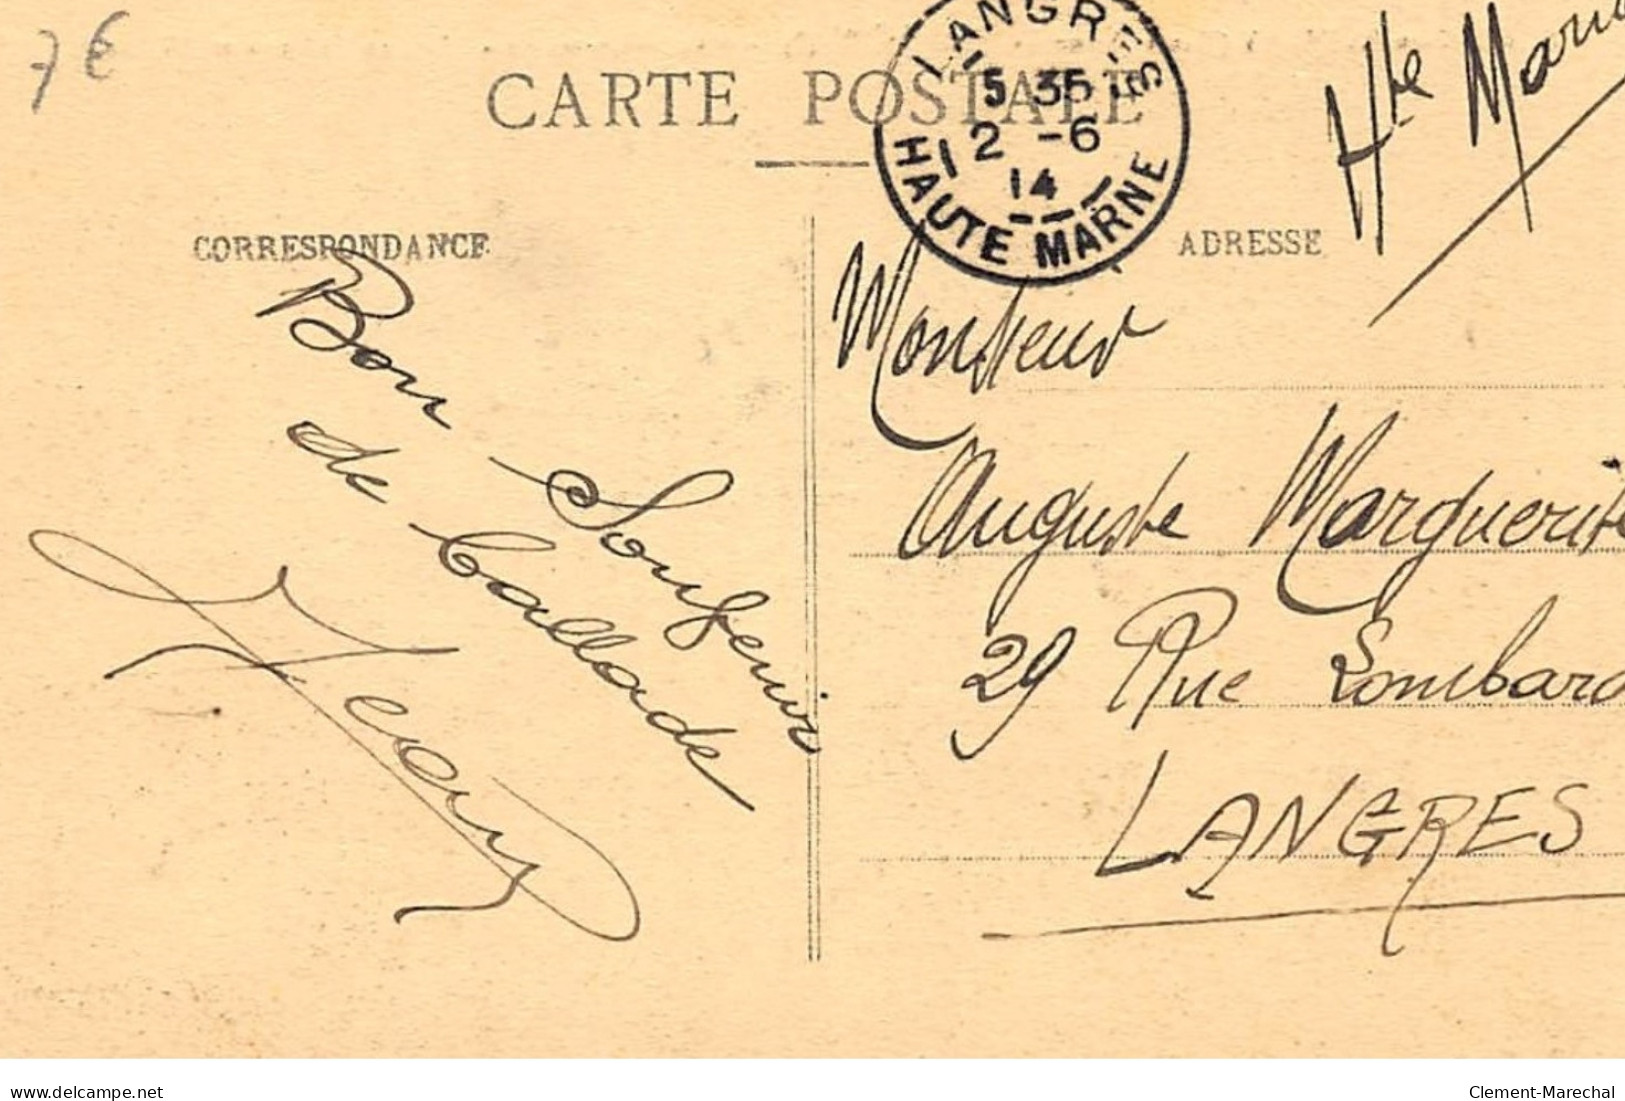 7 €
CARTE POSTALE
LANGRES
5 35
2 -6
14
HAUTE MARNE
Hte Marn
CORRESPONDANCE
ADRESSE
Bon Souvenir
de Caillade
Jean
Monsieur
Auguste Marguerite
29 Rue Lombard
LANGRES
www.delcampe.net
Clement-Marechal